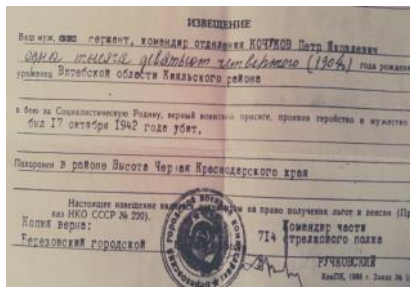 ИЗВЕЩЕНИЕ
Ваш муж, сержант, командир отделения КОЧУКОВ Петр Яковлевич
одна тысяча девятьсот четвертого (1904) года рождения
уроженец Витебской области Кияльского районе
в бою за Социалистическую Родину, верный воинской присяге, проявив геройство и мужество
был 17 октября 1942 года убит.
Похоронен в районе Высота Черная Краснодарского края
Настоящее извещение является на право получения льгот и пенсии (При
каз НКО СССР № 220).
Копия верна: Командир части
Березовский городской 714 стрелкового полка
РУЧКОВСКИЙ